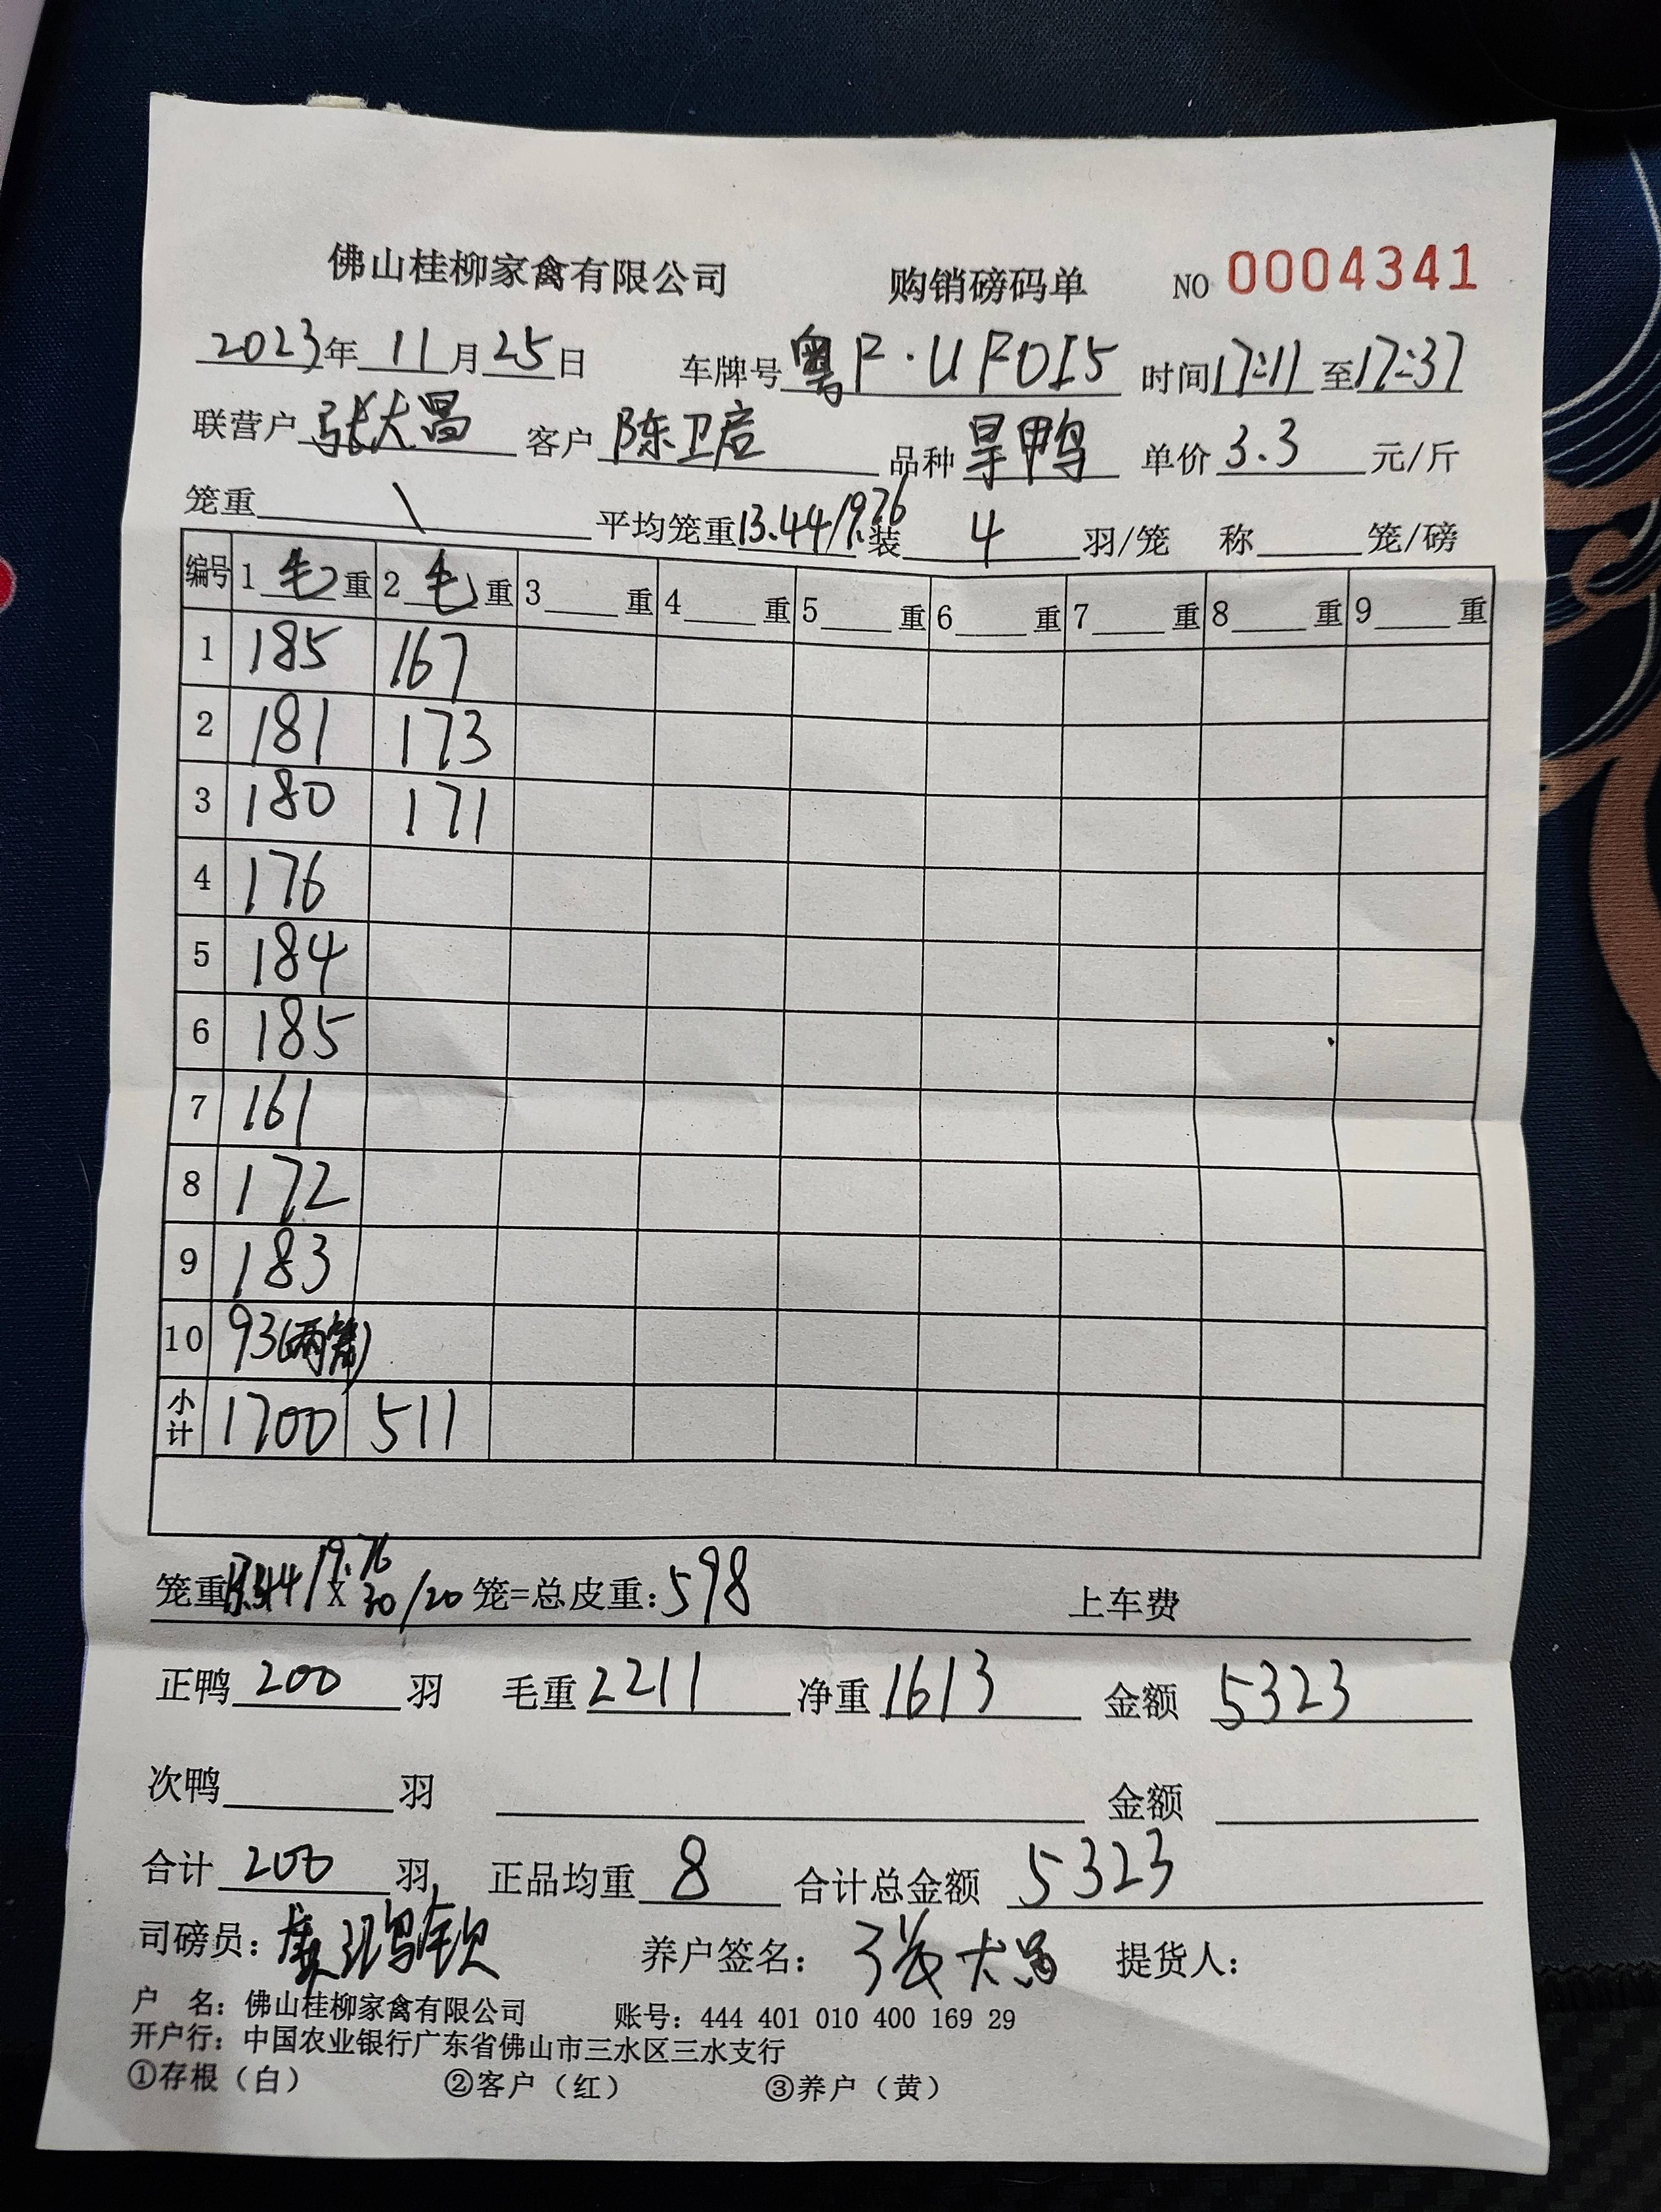 佛山桂柳家禽有限公司 购销磅码单 NO 0004341
2023年 11月25日 车牌号 粤F·UF0I5 时间17:11 至17:37
联营户 张大昌 客户 陈卫启 品种 旱鸭 单价 3.3 元/斤
笼重 \ 平均笼重13.44/9.76 装 4 羽/笼 称 笼/磅
编号 1 毛 重 2 毛 重 3 重 4 重 5 重 6 重 7 重 8 重 9 重
1 185 167
2 181 173
3 180 171
4 176
5 184
6 185
7 161
8 172
9 183
10 93(两笼)
小计 1700 511
笼重13.44/9.76 X 30/20 笼=总皮重:598 上车费
正鸭 200 羽 毛重 2211 净重 1613 金额 5323
次鸭 羽 金额
合计 200 羽 正品均重 8 合计总金额 5323
司磅员: 养户签名: 张大昌 提货人:
户 名: 佛山桂柳家禽有限公司 账号: 444 401 010 400 169 29
开户行: 中国农业银行广东省佛山市三水区三水支行
①存根（白） ②客户（红） ③养户（黄）